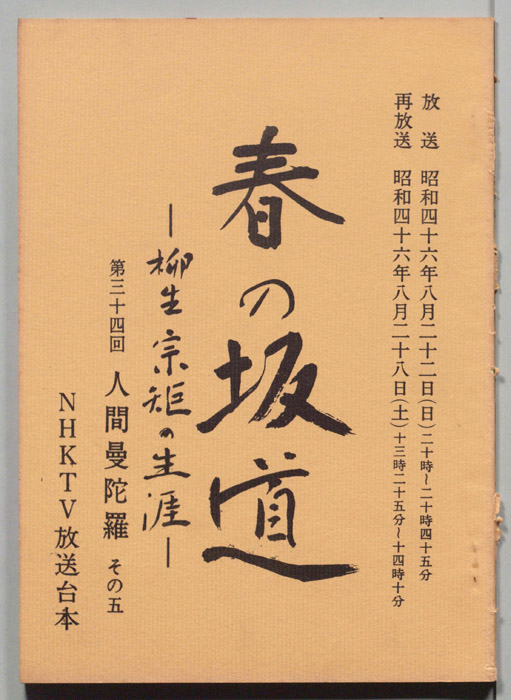 放送 昭和四十六年八月二十二日(日)二十時～二十時四十五分
再放送 昭和四十六年八月二十八日(土)十三時二十五分～十四時十分
春の坂道
―柳生宗矩の生涯―
第三十四回 人間曼陀羅 その五
NHKTV放送台本